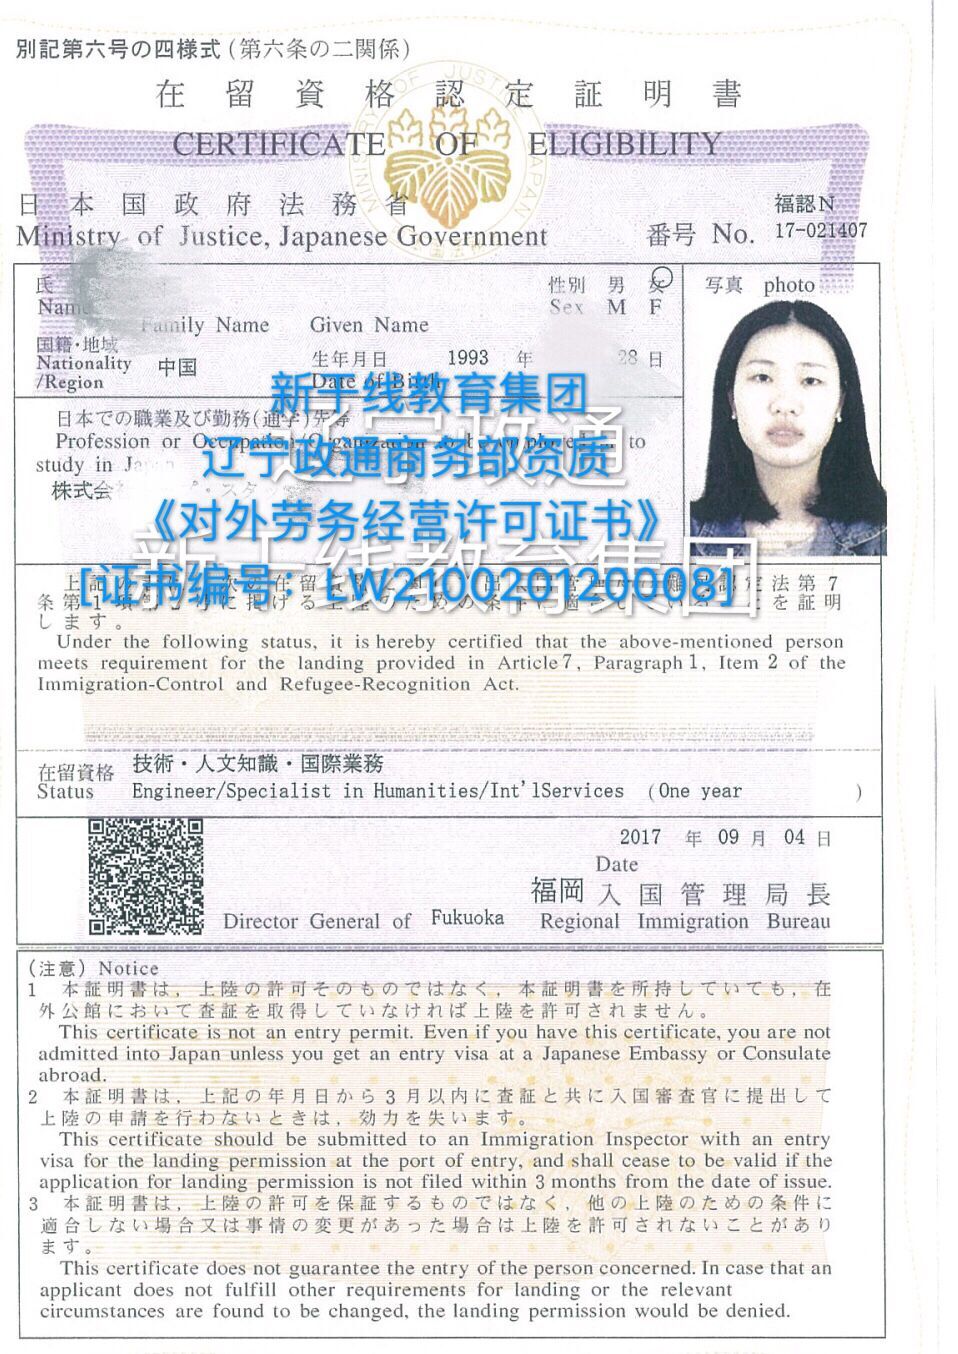 別記第六号の四様式(第六条の二関係)
在留資格認定証明書
CERTIFICATE OF ELIGIBILITY
日本国政府法務省
福認N
Ministry of Justice, Japanese Government
番号 No. 17-021407
氏 性別 男 女 写真 photo
Name Sex M F
Family Name Given Name
国籍・地域
Nationality
/Region
中国 生年月日 1993 年 28 日
Date of Birth
新干线教育集团
日本での職業及び勤務(通学)先等
辽宁政通
Profession or to
辽宁政通商务部资质
study in
株式会
《对外劳务经营许可证书》
新干线教育集团
[证书编号：LW210020120008]
法第7
条第1 を証明
します。
Under the following status, it is hereby certified that the above-mentioned person
meets requirement for the landing provided in Article 7, Paragraph 1, Item 2 of the
Immigration-Control and Refugee-Recognition Act.
在留資格 技術・人文知識・国際業務
Status Engineer/Specialist in Humanities/Int'lServices (One year )
2017 年 09 月 04 日
Date
福岡 入国管理局長
Director General of Fukuoka Regional Immigration Bureau
(注意) Notice
1 本証明書は，上陸の許可そのものではなく，本証明書を所持していても，在
外公館において査証を取得していなければ上陸を許可されません。
This certificate is not an entry permit. Even if you have this certificate, you are not
admitted into Japan unless you get an entry visa at a Japanese Embassy or Consulate
abroad.
2 本証明書は，上記の年月日から3月以内に査証と共に入国審査官に提出して
上陸の申請を行わないときは，効力を失います。
This certificate should be submitted to an Immigration Inspector with an entry
visa for the landing permission at the port of entry, and shall cease to be valid if the
application for landing permission is not filed within 3 months from the date of issue.
3 本証明書は，上陸の許可を保証するものではなく，他の上陸のための条件に
適合しない場合又は事情の変更があった場合は上陸を許可されないことがあり
ます。
This certificate does not guarantee the entry of the person concerned. In case that an
applicant does not fulfill other requirements for landing or the relevant
circumstances are found to be changed, the landing permission would be denied.